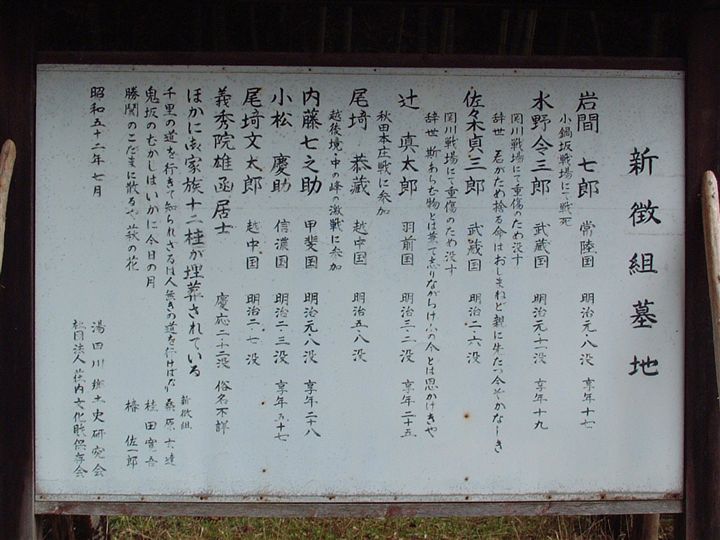 新徴組墓地
岩間 七郎 常陸国 明治元・八没 享年十七
小鍋坂戦場にて戦死
水野令三郎 武蔵国 明治元・十一没 享年十九
関川戦場にて重傷のため没す
辞世 君がため捨る命はおしまねど親に先たつ今そかなしき
佐々木貞三郎 武蔵国 明治二・六没
関川戦場にて重傷のため没す
辞世 斯あらむ物とは兼て志りながらけふの今とは思かけきや
辻 真太郎 羽前国 明治三・二没 享年二十五
秋田本庄戦に参加
尾埼 恭蔵 越中国 明治五・八没
越後境中の峰の激戦に参加
内藤七之助 甲斐国 明治元・八没 享年二十八
小松 慶助 信濃国 明治二・三没 享年五十七
尾埼文太郎 越中国 明治二・七没
義秀院雄函居士 慶応二・十二没 俗名不詳
ほかに御家族十二柱が埋葬されている
千里の道を行きて知られざるは人無きの道を行けばなり 新徴組 桑原玄達
鬼坂のむかしはいかに今日の月 桂田寛吾
勝関のこだまに散るや萩の花 椿 佐一郎
昭和五十二年七月
湯田川郷土史研究会
社団法人 荘内文化財保存会